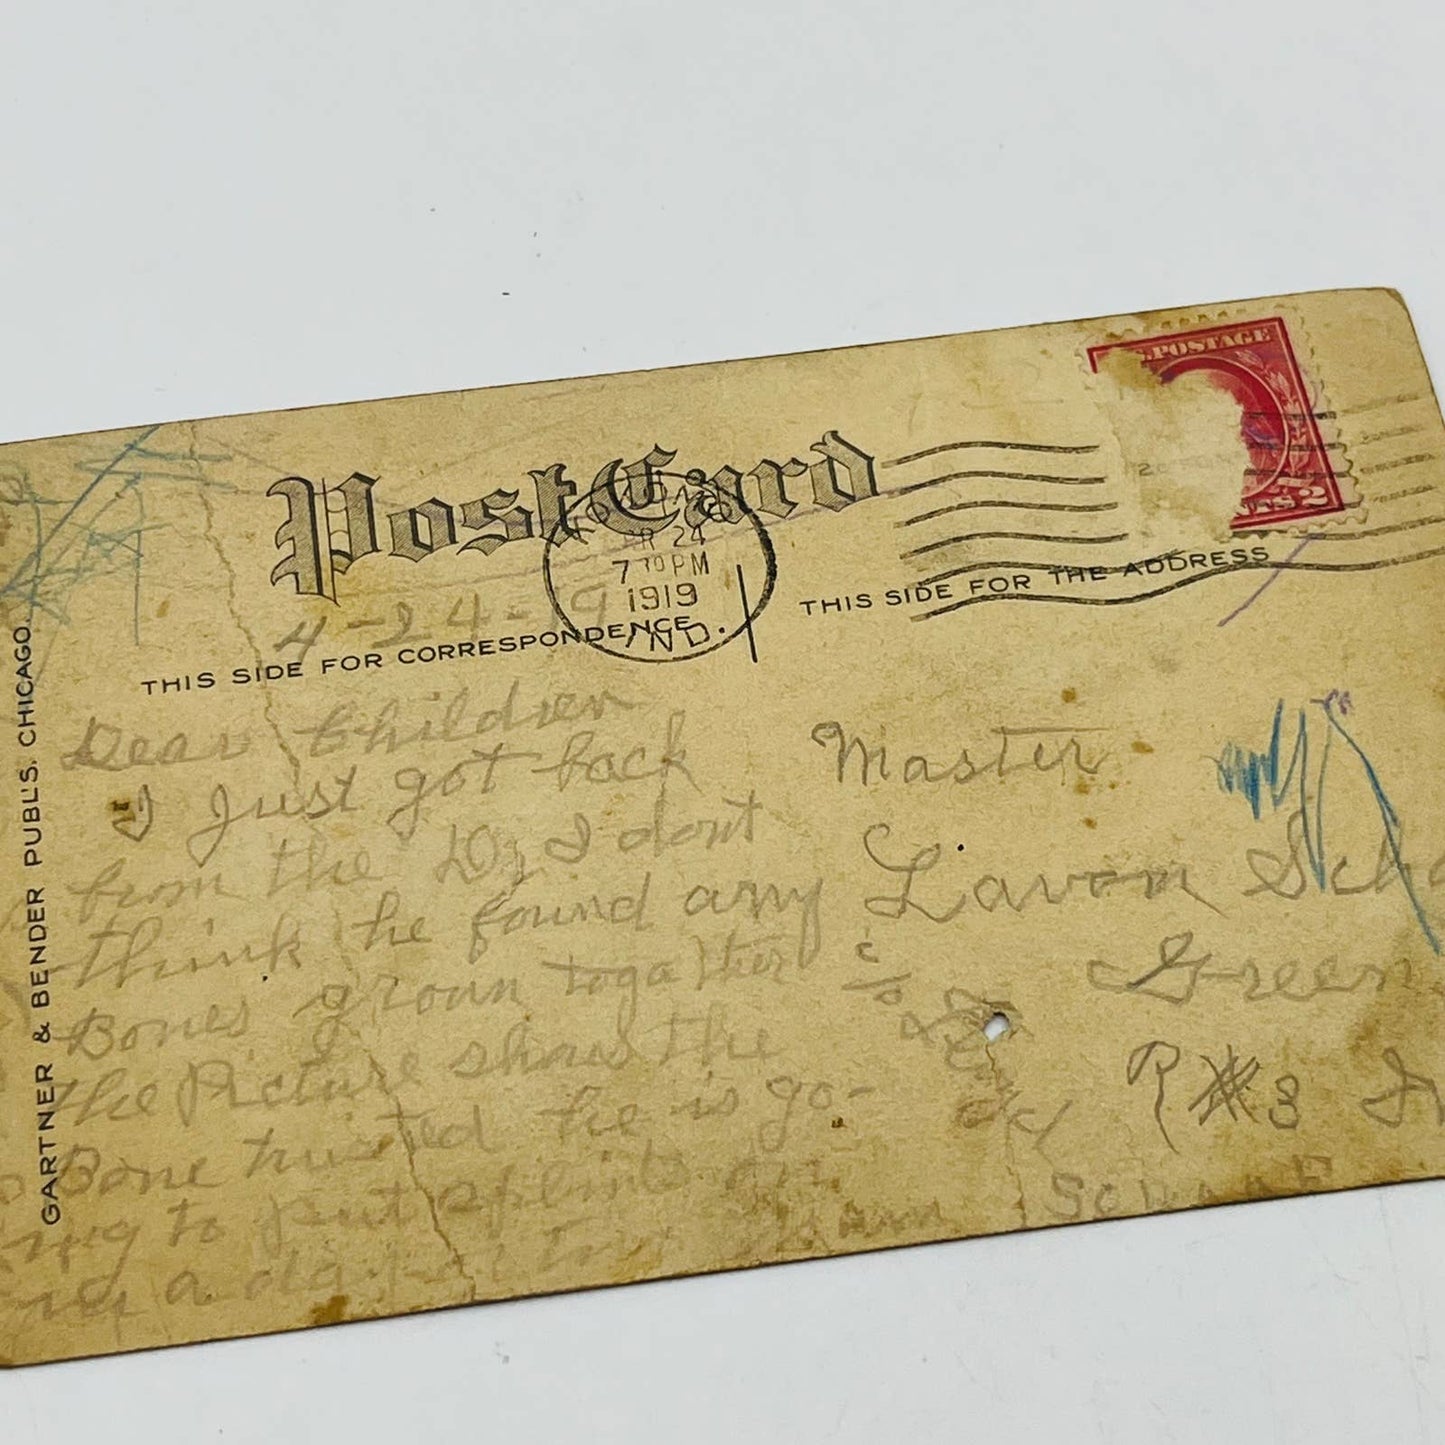 Post Card
U.S. POSTAGE
CTS 2
KOKOMO
APR 24
7 30 PM
1919
IND.
4-24-19
THIS SIDE FOR CORRESPONDENCE
THIS SIDE FOR THE ADDRESS
GARTNER & BENDER PUBL'S. CHICAGO.
Dear Children
I Just got back
from the Dr, I dont
think he found any
Bones grown togather
the Picture shows the
Bone twisted he is go-
ing to put splints on
in a day or two
Master
Lavon Scho
c/o
Green
R #3 I